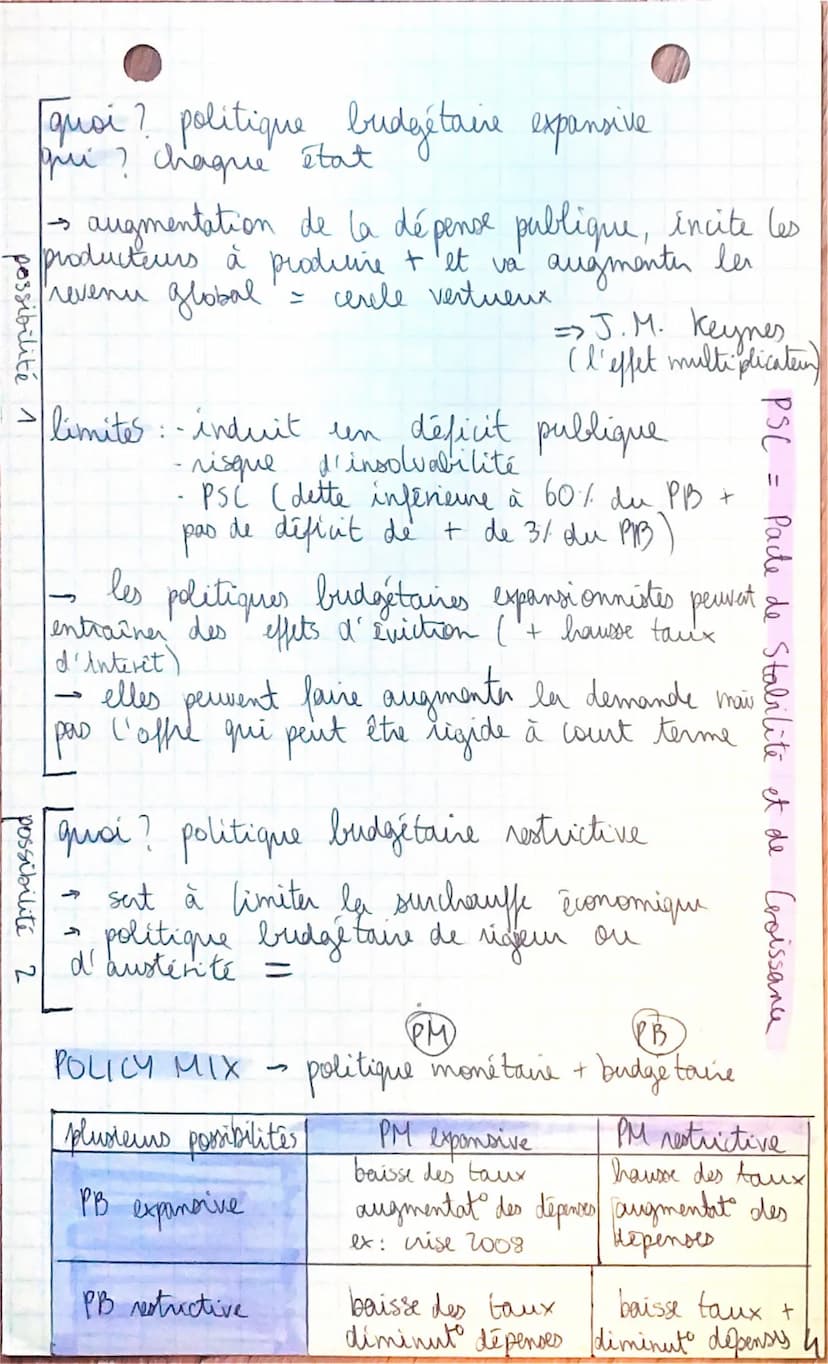 quoi ? politique budgétaire expansive
qui ? chaque état
→ augmentation de la dépense publique, incite les
producteurs à produire + et va augmenter les
revenu global = cercle vertueux
=> J.M. Keynes
(l'effet multiplicateur)
possibilité 1
limites : - induit un déficit publique
- risque d'insolvabilité
- PSC (dette inférieure à 60% du PB +
pas de déficit de + de 3% du PIB)
→ les politiques budgétaires expansionnistes peuvent
entraîner des effets d'éviction ( + hausse taux
d'intérêt)
→ elles peuvent faire augmenter la demande mais
pas l'offre qui peut être rigide à court terme
PSC = Pacte de Stabilité et de Croissance
possibilité 2
quoi ? politique budgétaire restrictive
→ sert à limiter la surchauffe économique
→ politique budgétaire de rigeur ou
d'austérité =
PM PB
POLICY MIX → politique monétaire + budgétaire
plusieurs possibilités PM expansive PM restrictive
PB expansive
baisse des taux
augmentat° des dépenses
ex : crise 2008
hausse des taux
augmentat° des
dépenses
PB restrictive
baisse des taux
diminut° dépenses
baisse taux +
diminut° dépenses
4